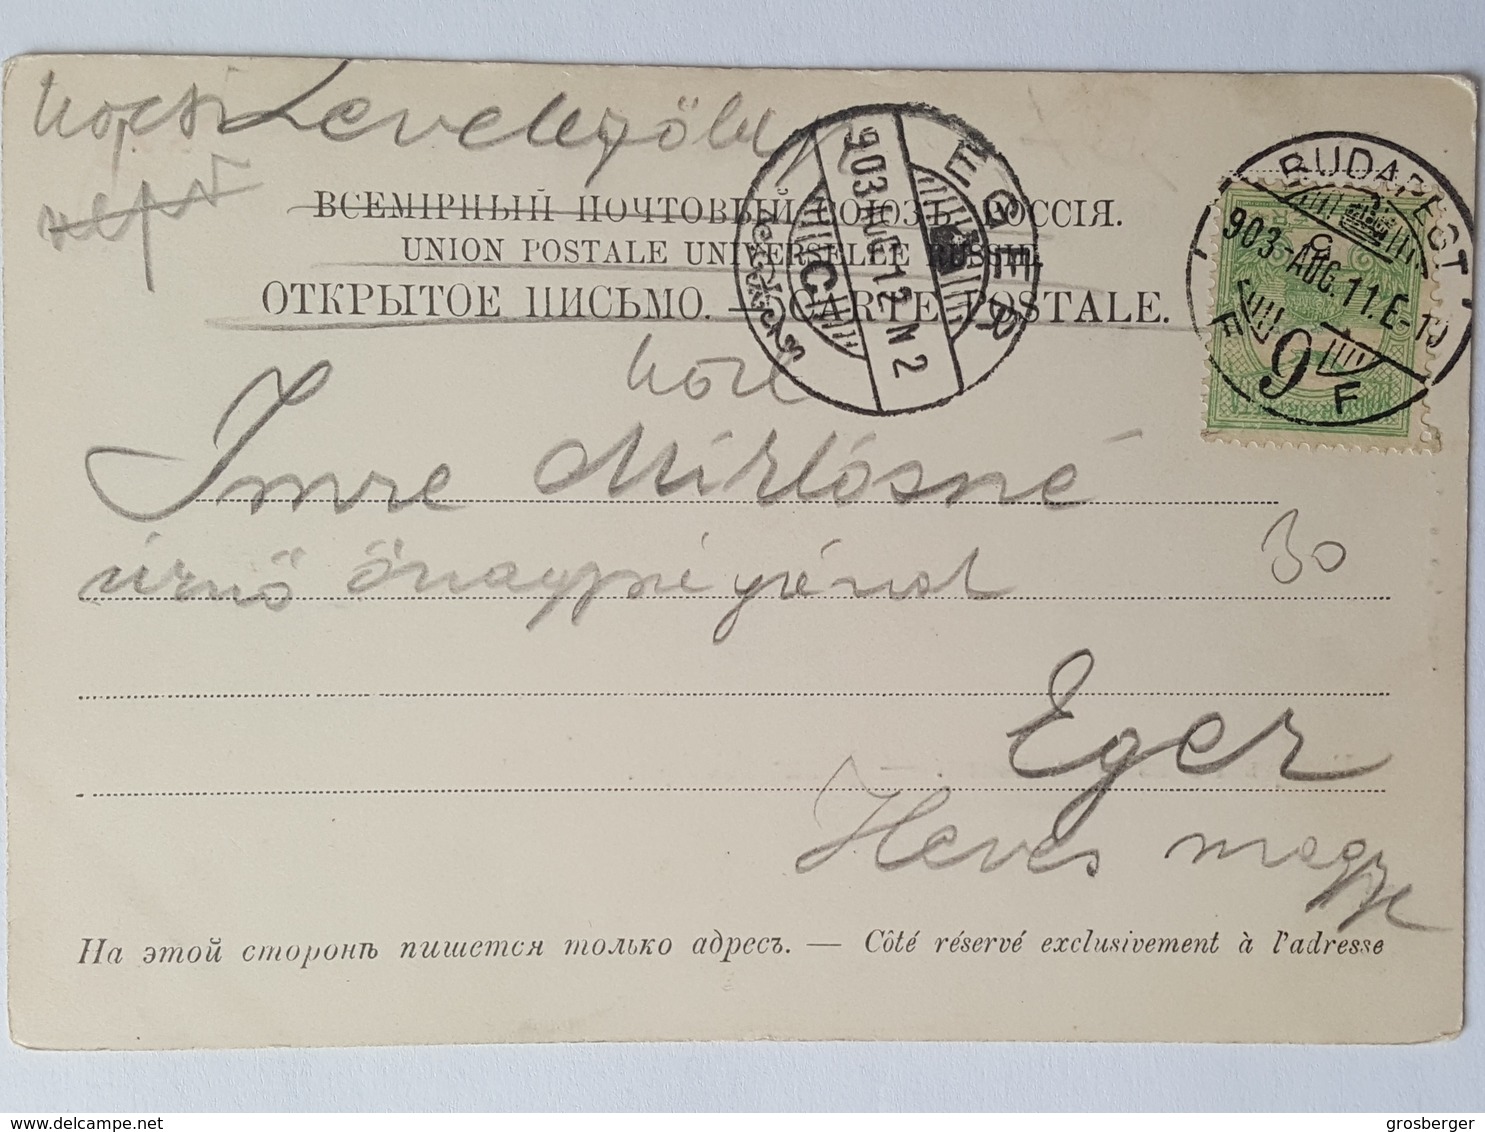 Levelezőlap
ВСЕМІРНЫЙ ПОЧТОВЫЙ СОЮЗЪ. РОССІЯ.
UNION POSTALE UNIVERSELLE RUSSIE.
ОТКРЫТОЕ ПИСЬМО. — CARTE POSTALE.
EGER
903 AUG 12 N 2
C
BUDAPEST
903 AUG. 11. E-10
9
F F
Imre Miklósné
úrnő őnagyságának
30
Eger
Heves megye
На этой сторонѣ пишется только адресъ. — Côté réservé exclusivement à l'adresse
grosberger